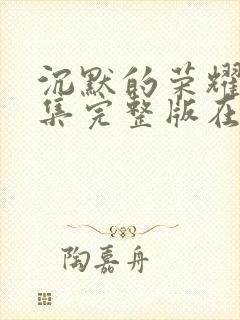 沉默的荣耀
集完整版在
陶嘉舟